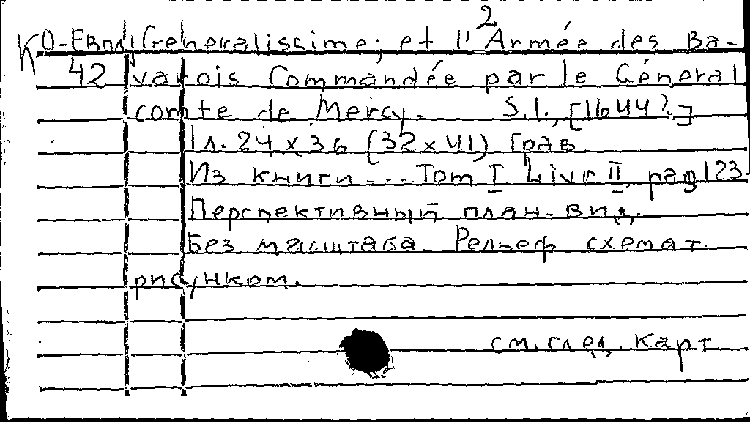 2
КО-Евпд, Generalissime; et l'Armée des Ba-
42 varois Commandée par le Géneral
comte de Mercy. S.l., [1644?]
1л. 24 x 36 (32 x 41) Грав.
Из книги ... Tom I Livr II, pag 123.
Перспективный план-вид.
Без масштаба. Рельеф схемат.
рисунком.
см. след. карт